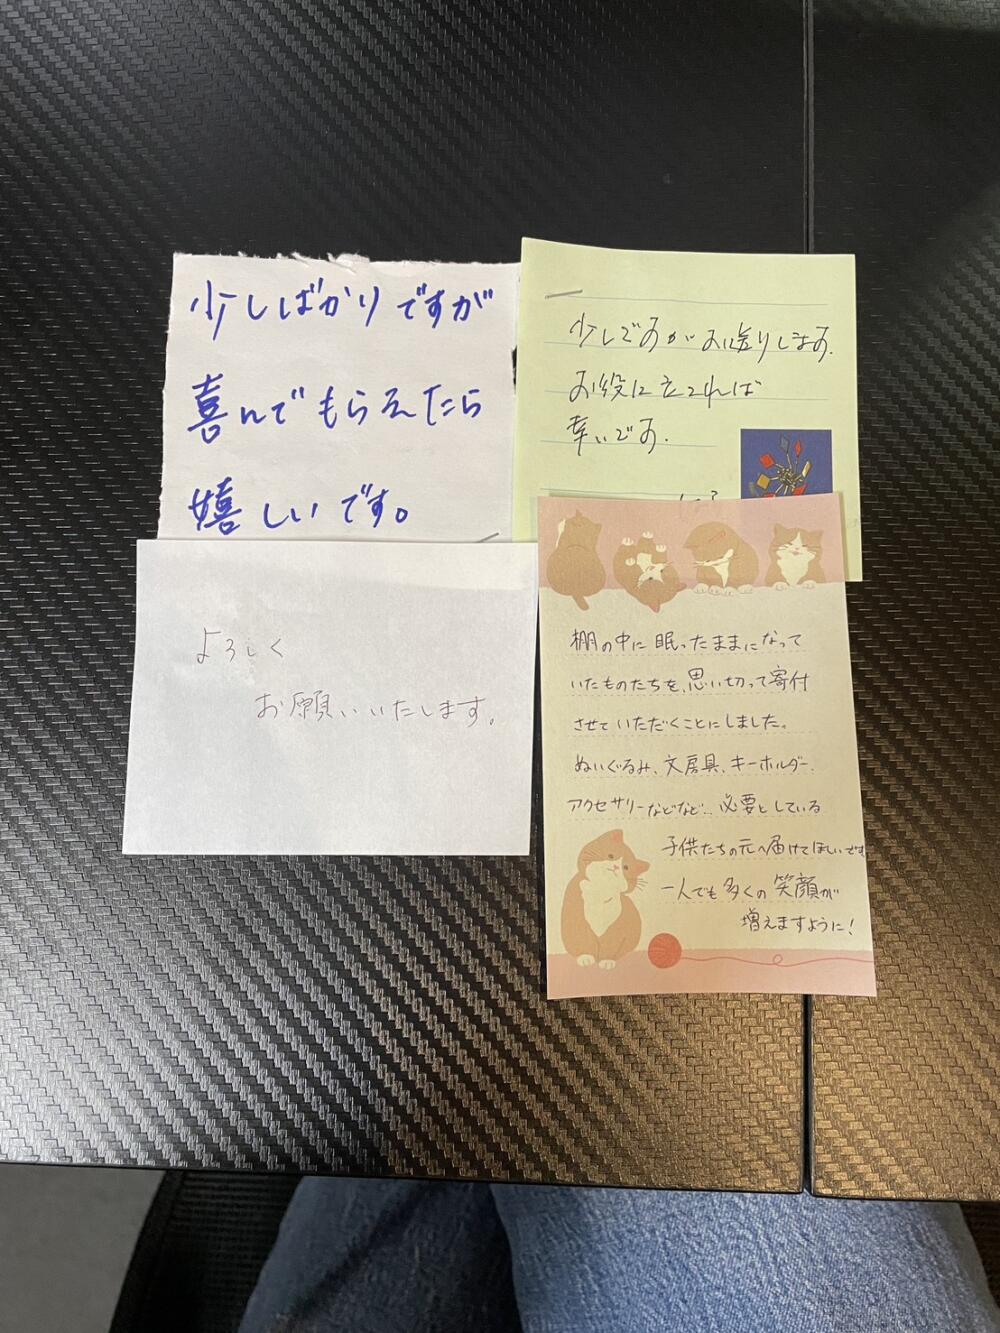 少しばかりですが
喜んでもらえたら
嬉しいです。
少しですがお送りします。
お役に立てれば
幸いです。
よろしく
お願いいたします。
棚の中に眠ったままになって
いたものたちを、思い切って寄付
させていただくことにしました。
ぬいぐるみ、文房具、キーホルダー、
アクセサリーなどなど… 必要としている
子供たちの元へ届けてほしいです
一人でも多くの笑顔が
増えますように!